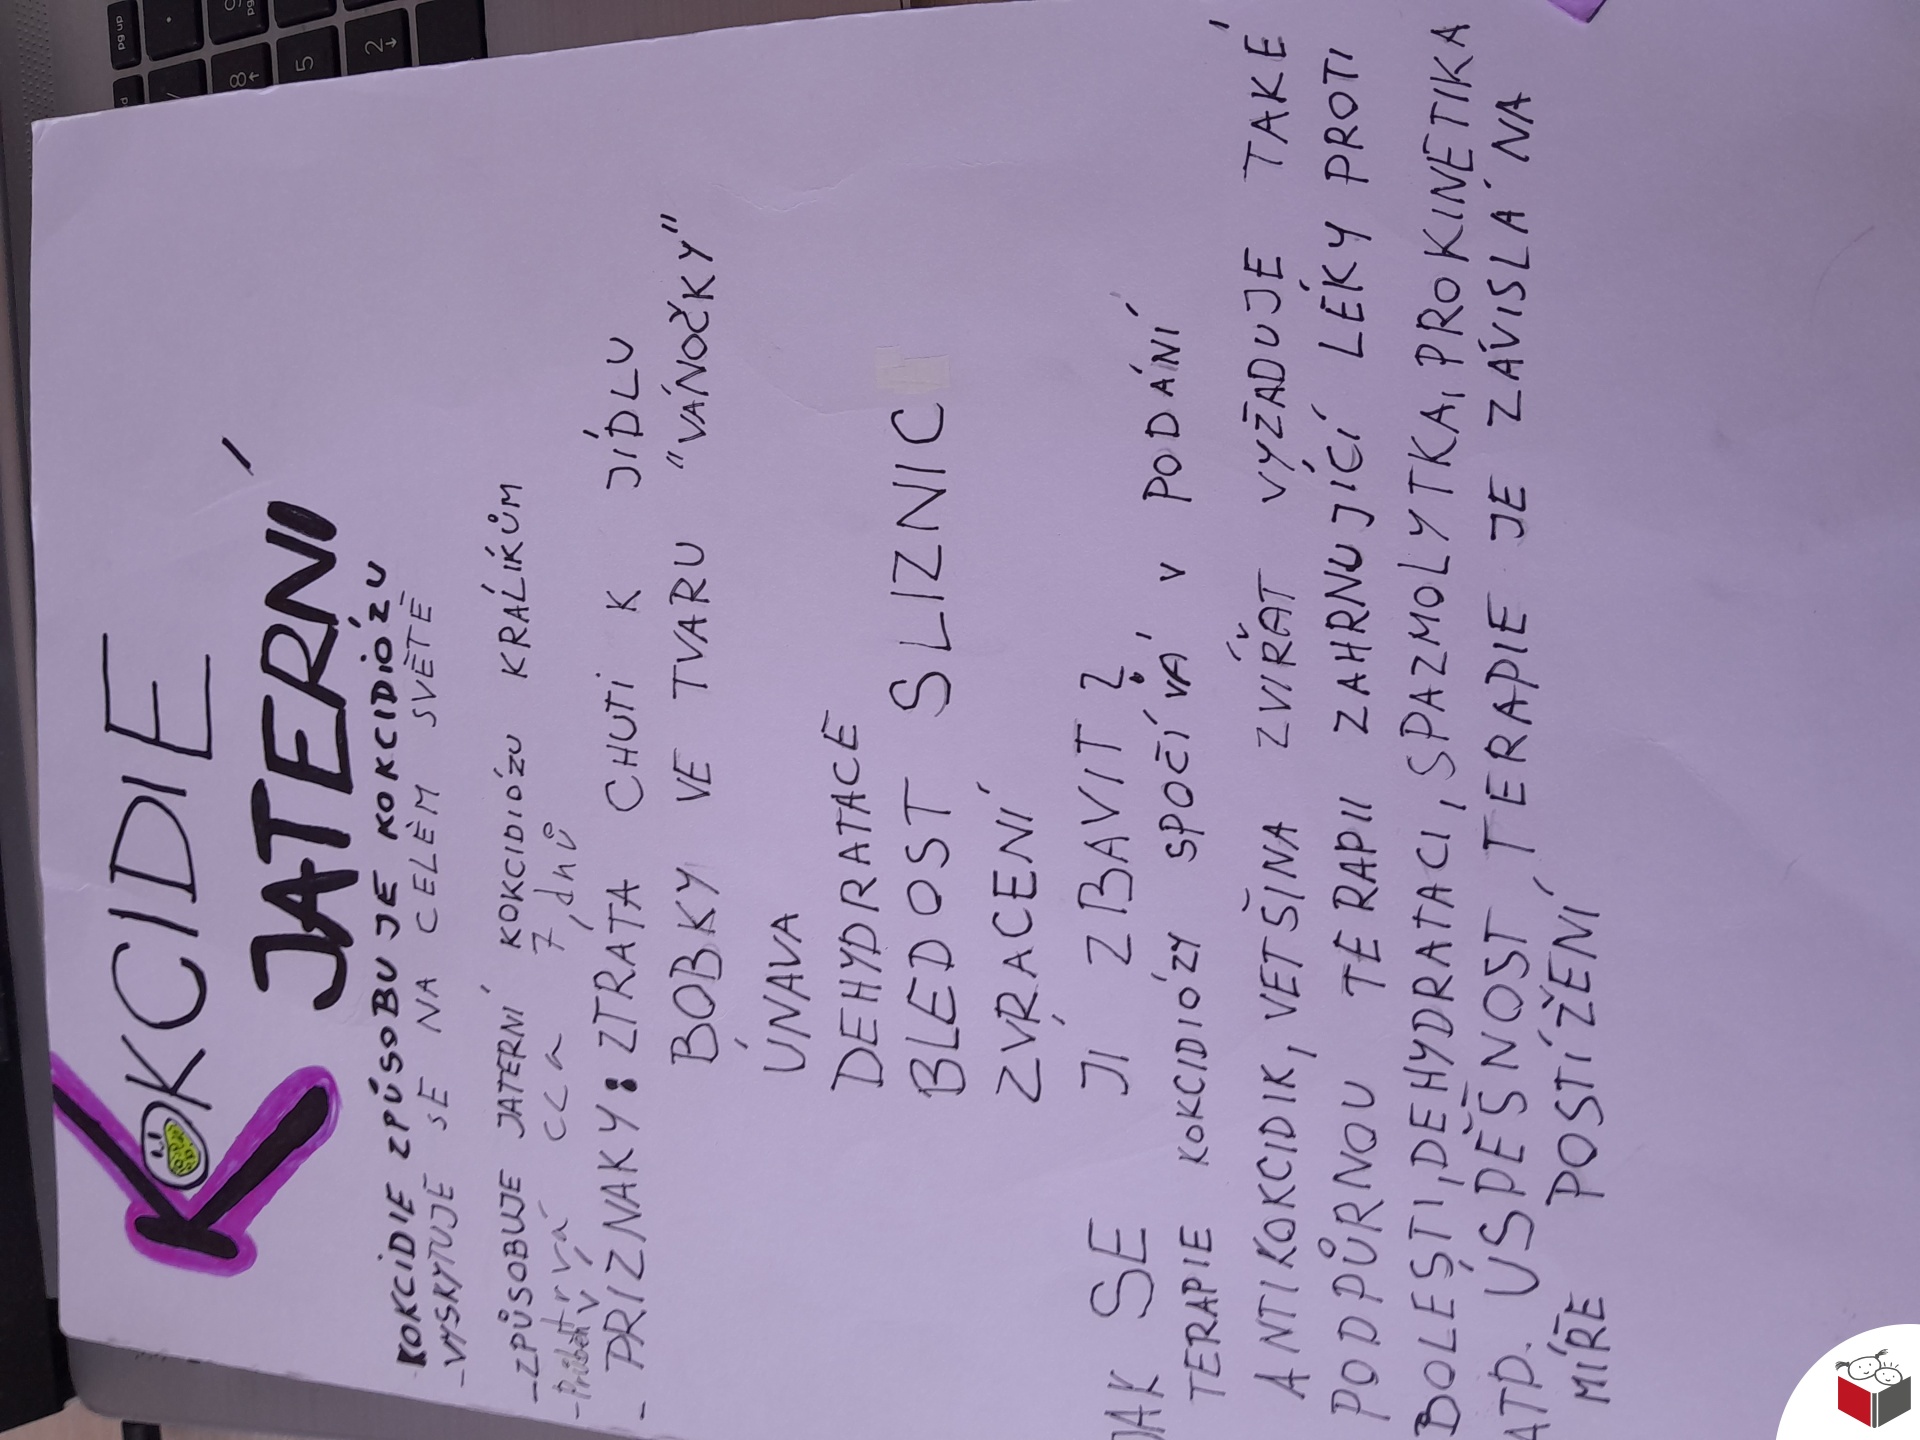 KOKCIDIE
JATERNÍ
KOKCIDIE ZPŮSOBUJE KOKCIDIÓZU
-VYSKYTUJE SE NA CELÉM SVĚTĚ
-ZPŮSOBUJE JATERNÍ KOKCIDIÓZU KRÁLÍKŮM
trvá cca 7 dnů
- PŘÍZNAKY: ZTRÁTA CHUTI K JÍDLU
BOBKY VE TVARU "VÁNOČKY"
ÚNAVA
DEHYDRATACE
BLEDOST SLIZNIC
ZVRACENÍ
JAK SE JI ZBAVIT?
TERAPIE KOKCIDIÓZY SPOČÍVÁ V PODÁNÍ
ANTIKOKCIDIK, VETŠINA ZVÍŘAT VYŽADUJE TAKÉ
PODPŮRNOU TERAPII ZAHRNUJÍCÍ LÉKY PROTI
BOLESTI, DEHYDRATACI, SPAZMOLYTKA, PROKINETIKA
ATD. USPĚŠNOST TERAPIE JE ZÁVISLÁ NA
MÍŘE POSTÍŽENÍ
pg up
8
5
2